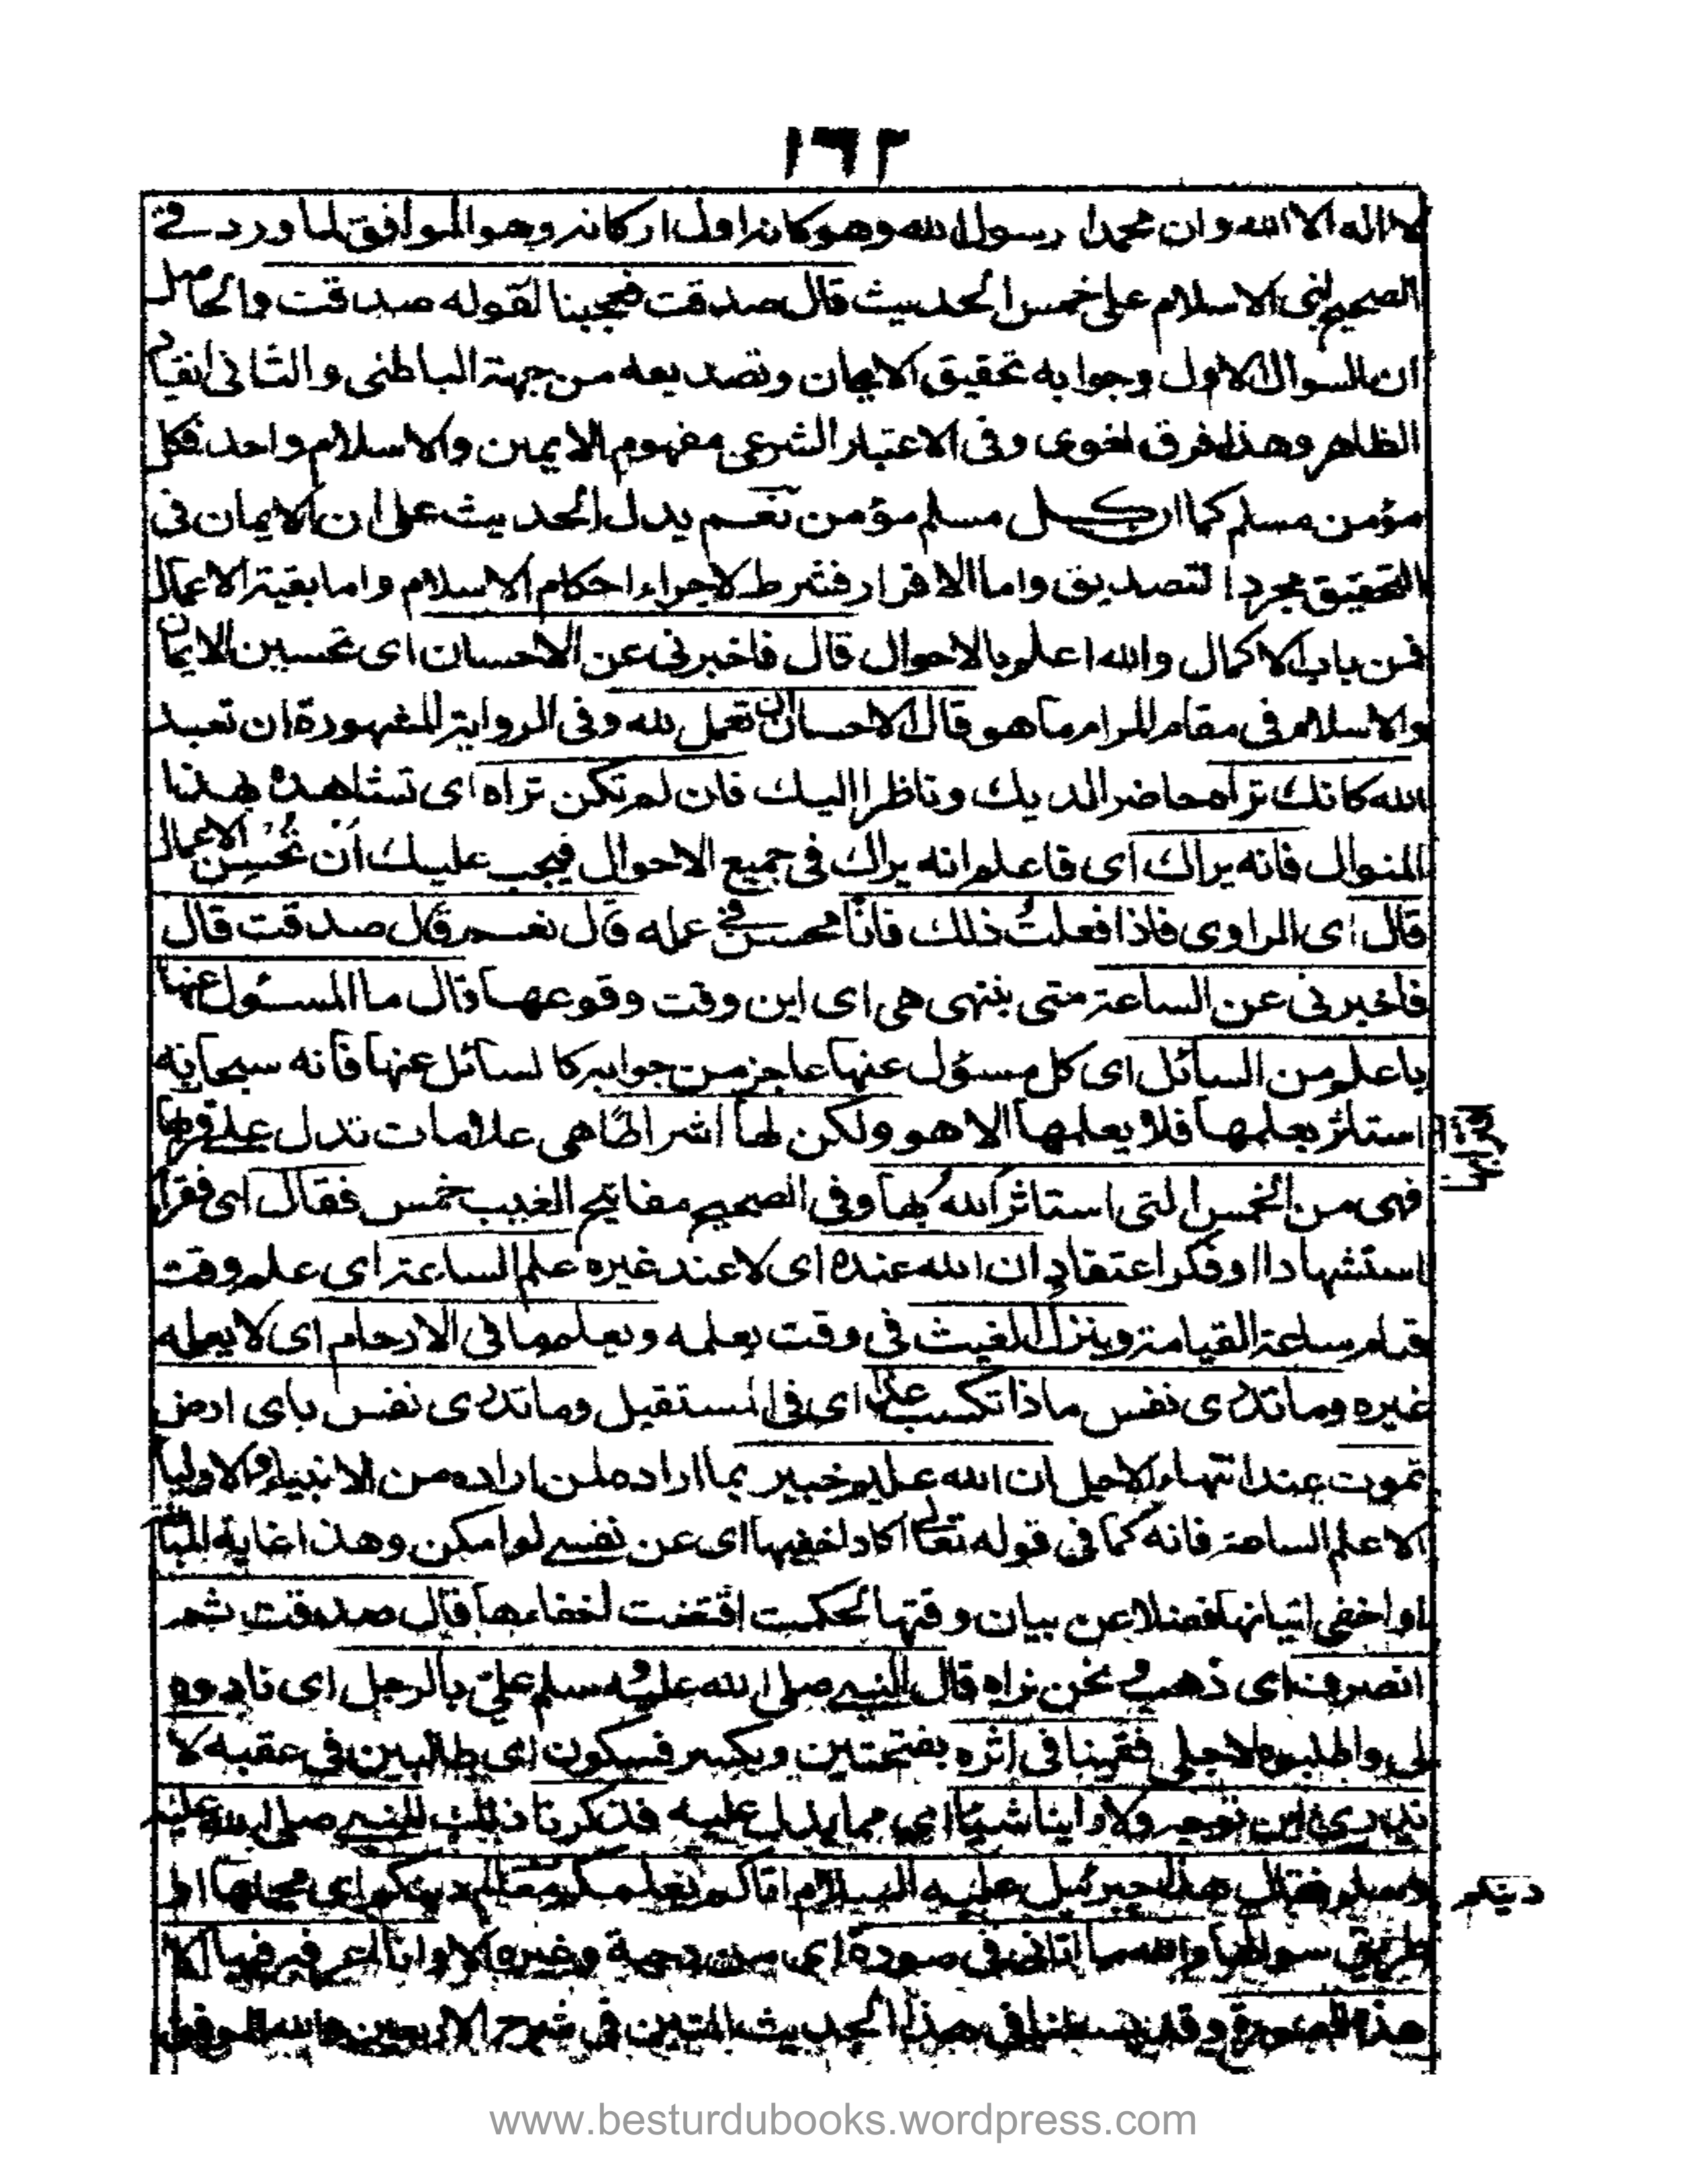 ١٦٢
لا اله الا الله وان محمدا رسول الله وهو كانه اول اركانه وهو الموافق لما ورد في
الصحيح بنى الاسلام على خمس الحديث قال صدقت فعجبنا لقوله صدقت والحاصل
ان السوال الاول وجوابه تحقيق الايمان وتصديقه من جهة الباطنى والثانى انقياد
الظاهر وهذا فرق لغوى وفى الاعتبار الشرعى مفهوم الايمان والاسلام واحد فكل
مؤمن مسلم كما ان كل مسلم مؤمن نعم يدل الحديث على ان الايمان فى
التحقيق مجرد التصديق واما الاقرار فشرط لاجراء احكام الاسلام واما بقية الاعمال
فمن باب الاكمال والله اعلم بالاحوال قال فاخبرنى عن الاحسان اى تحسين الايمان
والاسلام فى مقام المرام ما هو قال الاحسان ان تعمل لله وفى الرواية المشهورة ان تعبد
الله كانك تراه حاضرا لديك وناظرا اليك فان لم تكن تراه اى تشاهده بهذا
المنوال فانه يراك اى فاعلم انه يراك فى جميع الاحوال فيجب عليك أن تُحسِن الاعمال
قال اى الراوى فاذا فعلتُ ذلك فانا محسن فى عمله قال نعم قال صدقت قال
فاخبرنى عن الساعة متى ينتهى هى اى اين وقت وقوعها قال ما المسئول عنها
باعلم من السائل اى كل مسؤل عنها عاجز من جوابه كالسائل عنها فانه سبحانه
استاثر بعلمها فلا يعلمها الا هو ولكن لها اشراطا هى علامات تدل على قربها
فهى من الخمس التى استاثر الله بها وفى الصحيح مفاتيح الغيب خمس فقال اى فقرأ
استشهادا او فكر اعتقاد ان الله عنده اى لا عند غيره علم الساعة اى علم وقت
قيام ساعة القيامة وينزل الغيث فى وقت يعلمه ويعلم ما فى الارحام اى لا يعلمه
غيره وما تدرى نفس ماذا تكسب غدا اى فى المستقبل وما تدرى نفس باى ارض
تموت عند انتهاء الاجل ان الله عليم خبير بما اراده لمن اراده من الانبياء والاولياء
الا علم الساعة فانه كما فى قوله تعالى اكاد اخفيها اى عن نفسى لو امكن وهذا غاية المبالغة
او اخفى اتيانها فضلا عن بيان وقتها لحكمت اقتضت لخفاءها قال صدقت ثم
انصرف اى ذهب ونحن نراه قال النبى صلى الله عليه وسلم علىّ بالرجل اى نادوه
لى واطلبوه لاجلى فقمنا فى اثره بفتحتين وبكسر فسكون اى طالبين فى عقبه لا
ندرى اين توجه ولا راينا شيئا اى مما يدل عليه فذكرنا ذلك للنبى صلى الله عليه
وسلم فقال هذا جبرئيل عليه السلام اتاكم يعلمكم معالم دينكم اى محلها او
طريق سوالها والله ما اتانى فى صورة اى من دحية وغيره الا وانا اعرفه فيها الا
هذه الصورة وقد بسطنا فى هذا الحديث المتين فى شرح الاربعين والله الموفق
دينكم
www.besturdubooks.wordpress.com